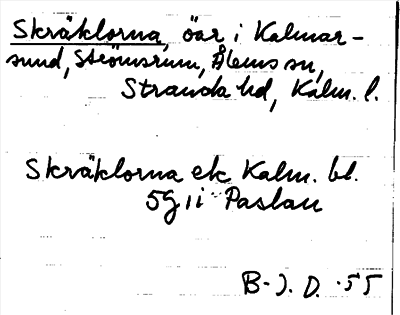 Skräklorna, öar i Kalmar-
sund, Strömsrum, Ålems sn,
Stranda hd, Kalm. l.
Skräklorna ek Kalm. bl.
5g ii Paslau
B-J. D. 55